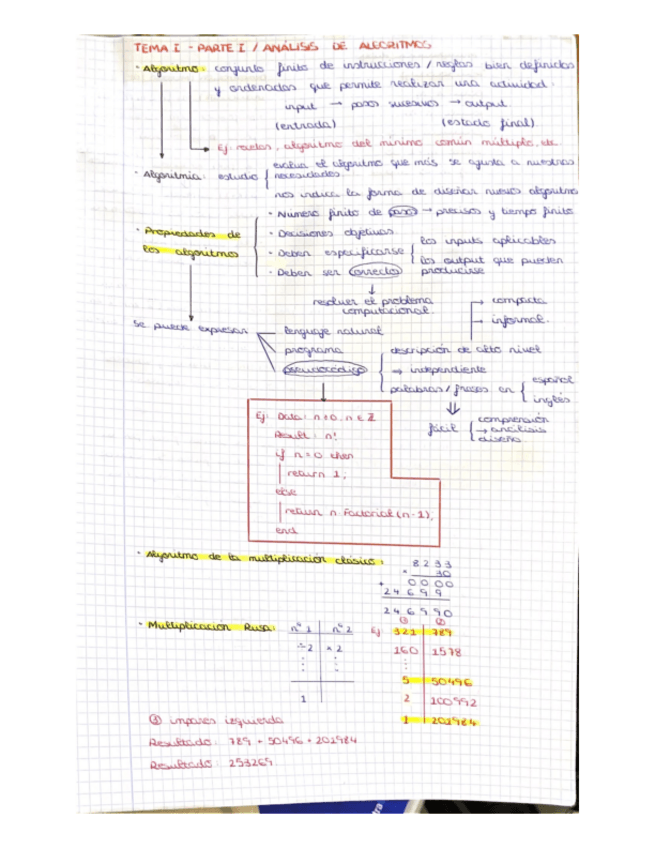 TEMA I - PARTE I / ANÁLISIS DE ALGORITMOS
· Algoritmo: conjunto finito de instrucciones / reglas bien definidas
y ordenadas que permite realizar una actividad.
input → pasos sucesivos → output
(entrada) (estado final)
Ej: recetas, algoritmo del mínimo común múltiplo, etc.
evalua el algoritmo que más se ajusta a nuestras
· Algoritmia: estudio necesidades.
nos indica la forma de diseñar nuevos algoritmos
· Número finito de pasos → precisos y tiempo finito
· Propiedades de · Decisiones objetivas
los algoritmos · Deben especificarse los inputs aplicables
los output que pueden
· Deben ser correctos producirse
resolver el problema → compacta
computacional. → informal.
Se puede expresar lenguaje natural
programa descripción de alto nivel
pseudocódigo → independiente
palabras / frases en español
inglés
fácil comprensión
→ análisis
diseño
Ej: Data: n≥0, n ∈ Z
Result: n!
if n=0 then
return 1;
else
return n·Factorial(n-1);
end
· Algoritmo de la multiplicación clásico:
8233
× 30
+ 0000
24699
246990
· Multiplicación Rusa: nº1 nº2 Ej ① ②
321 789
÷2 ×2 160 1578
⋮ ⋮ ⋮
5 50496
1 2 100992
1 201984
③ impares izquierda
Resultado: 789 + 50496 + 201984
Resultado: 253269.